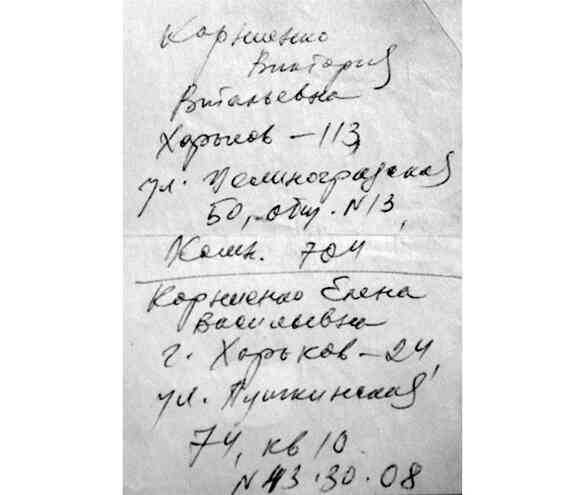 Корниенко
Виктория
Витальевна
Харьков – 113,
ул. Целиноградская
50, общ. N13,
Комн. 704
Корниенко Елена
Васильевна
г. Харьков – 24,
ул. Пушкинская,
74, кв 10.
N 43.30.08